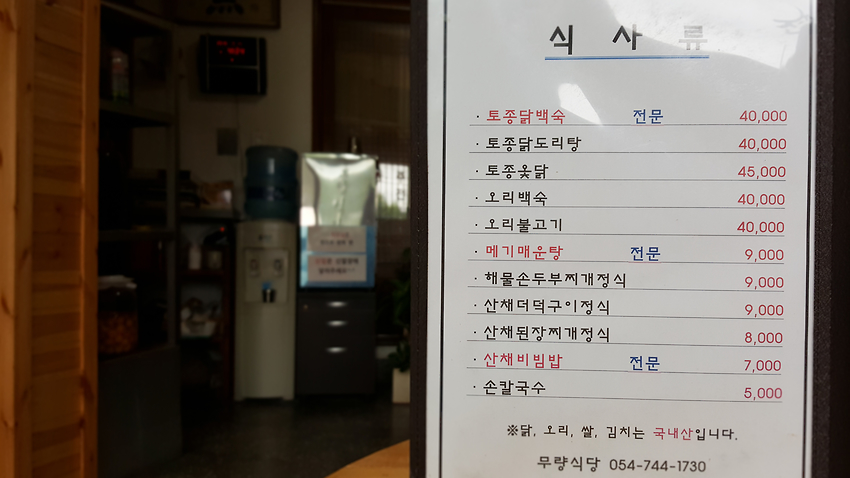 식 사 류
· 토종닭백숙 전문 40,000
· 토종닭도리탕 40,000
· 토종옻닭 45,000
· 오리백숙 40,000
· 오리불고기 40,000
· 메기매운탕 전문 9,000
· 해물손두부찌개정식 9,000
· 산채더덕구이정식 9,000
· 산채된장찌개정식 8,000
· 산채비빔밥 전문 7,000
· 손칼국수 5,000
※닭, 오리, 쌀, 김치는 국내산입니다.
무량식당 054-744-1730